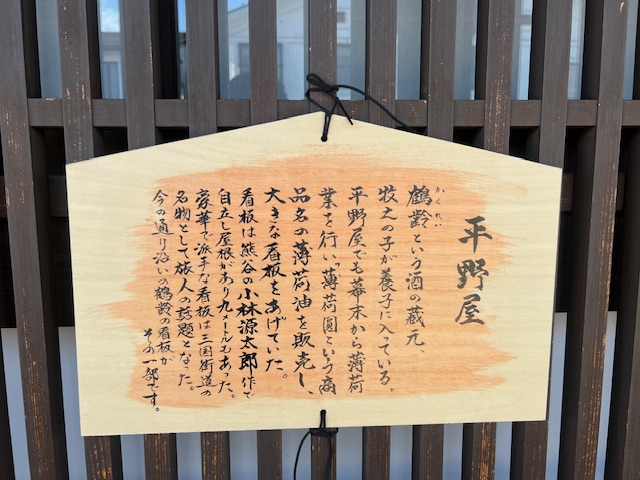 平野屋
かくれい
鶴齢という酒の蔵元、
牧之の子が養子に入っている。
平野屋でも幕末から薄荷
業を行い、薄荷圓という商
品名の薄荷油を販売し、
大きな看板をあげていた。
看板は熊谷の小林源太郎作で
自立し屋根があり九メートルもあった。
豪華で派手な看板は三国街道の
名物として旅人の話題となった。
今の通り沿いの鶴齢の看板が
その一部です。